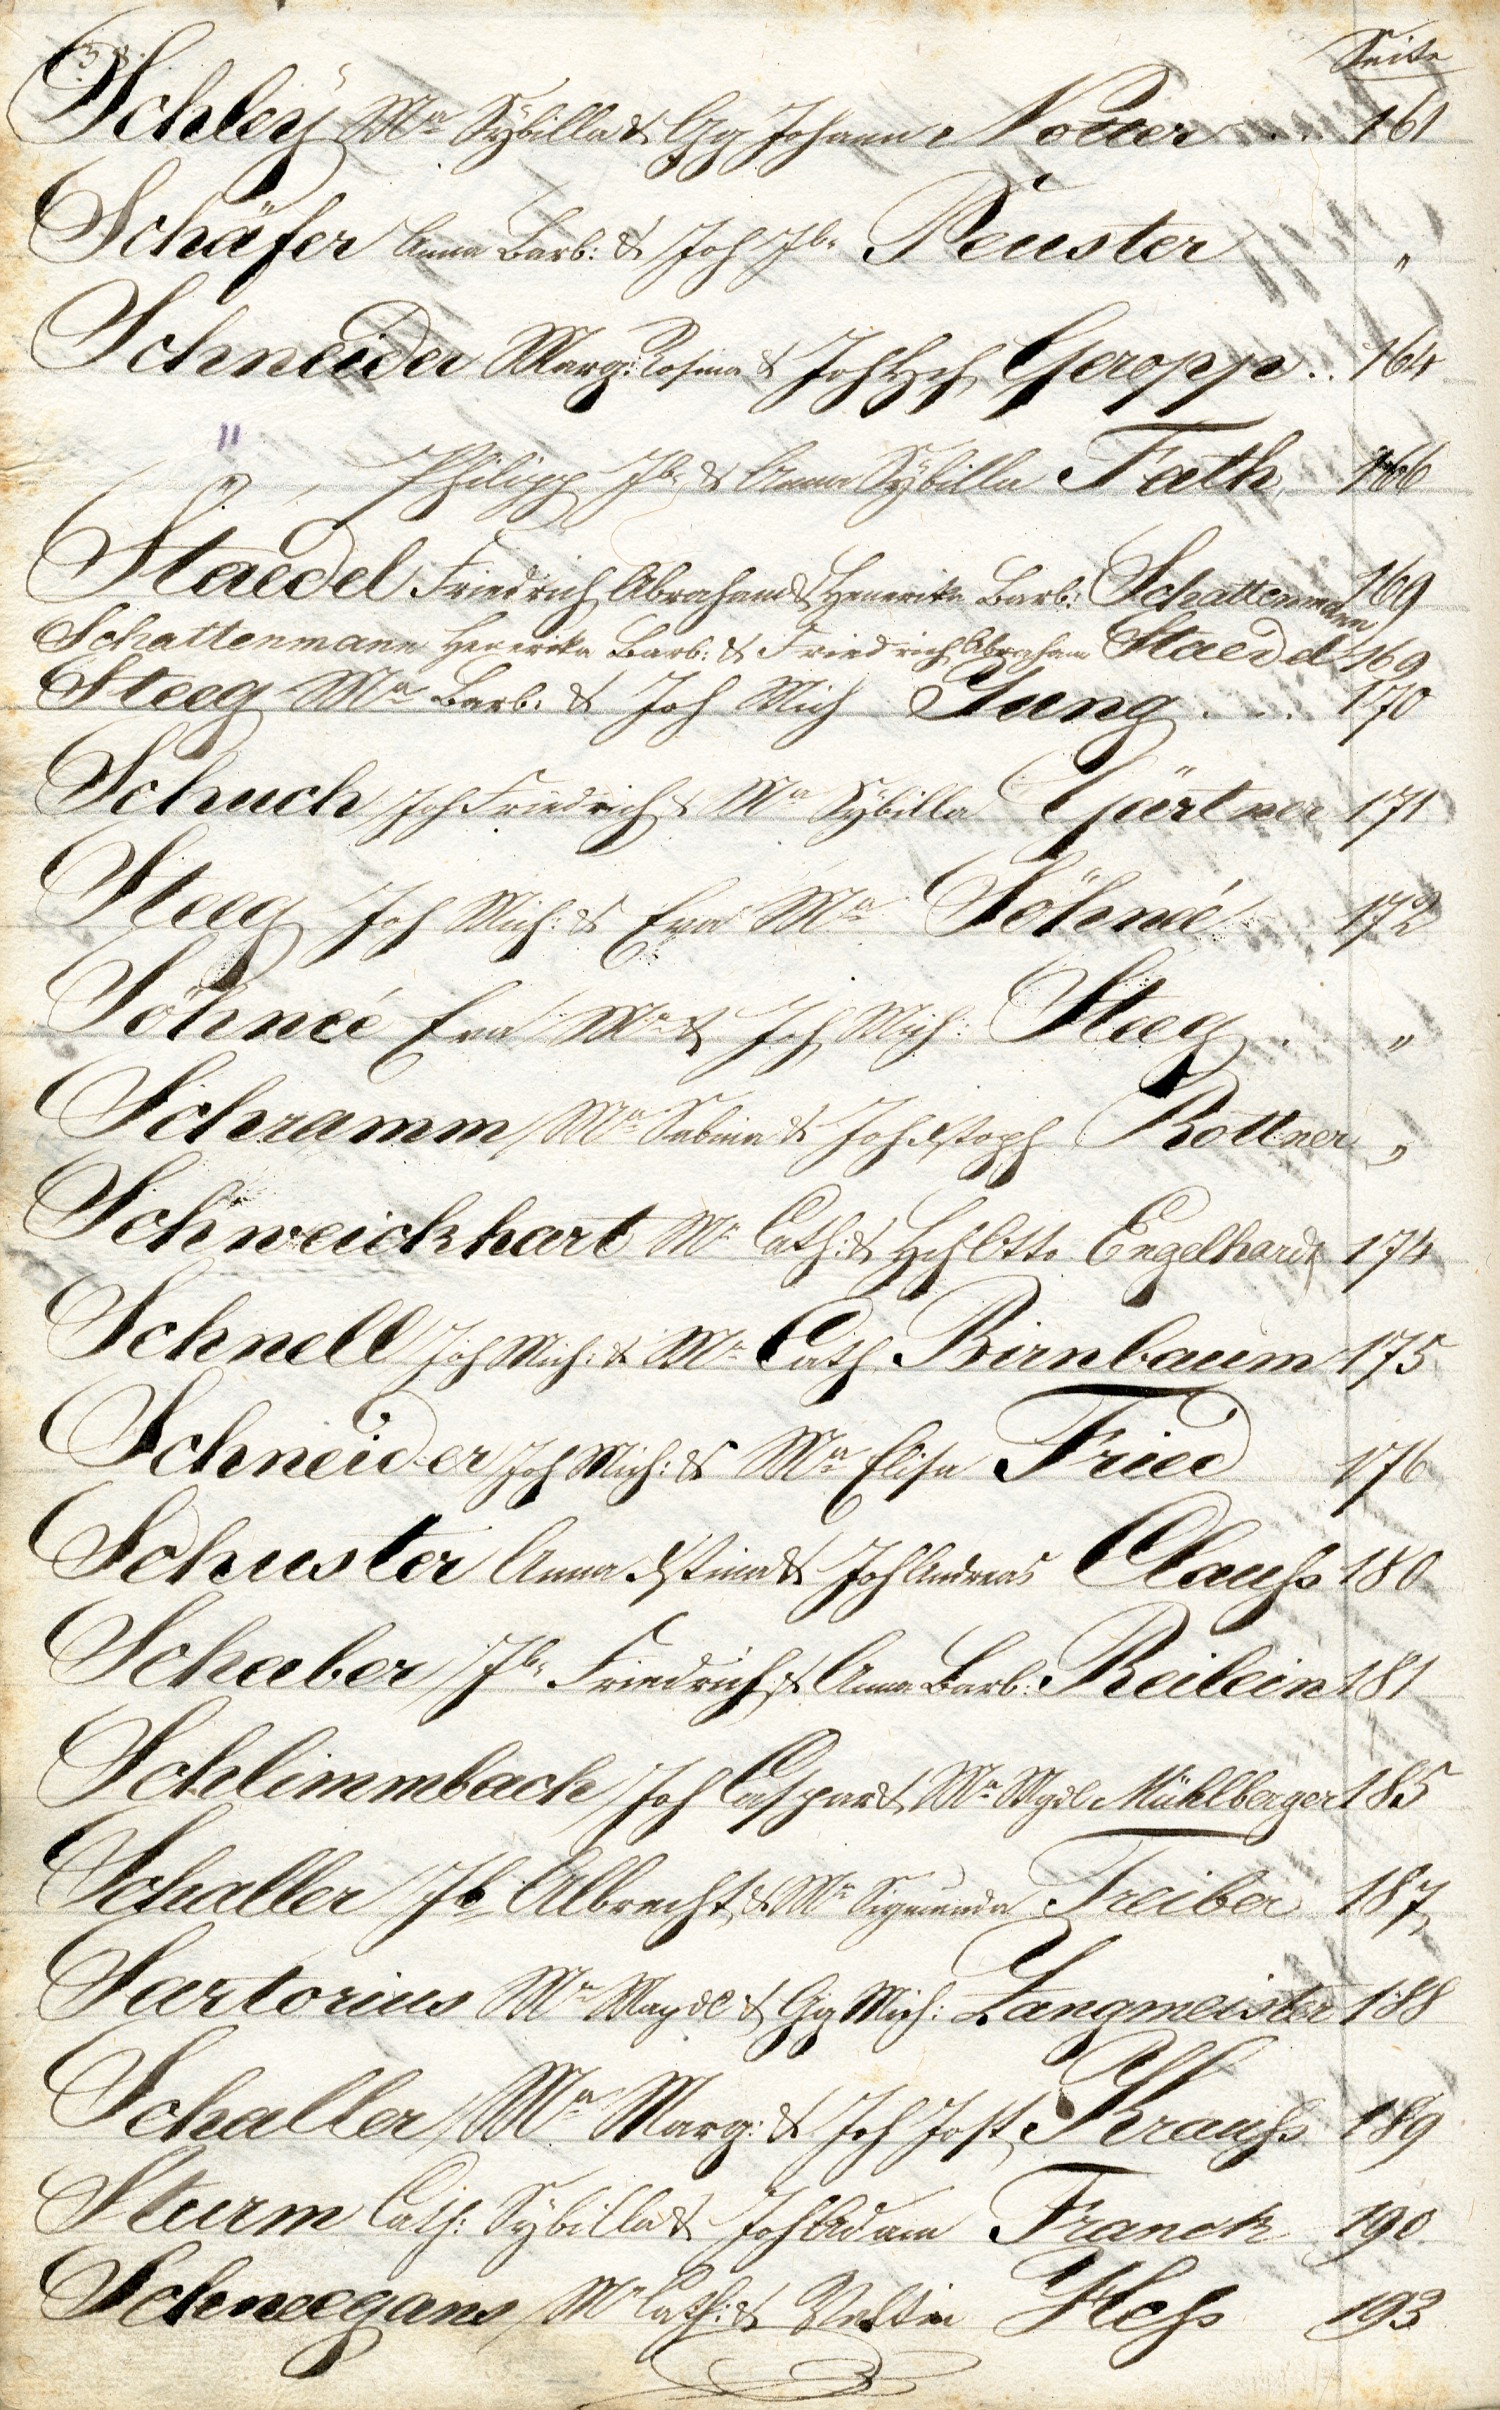 Seite
Schleÿ Mᵃ Sÿbilla & Gg Johann Notter . . . 161
Schäfer Anna Barb: & Joh Jbᵉ Peuster "
Schneider Marg: Rosina & Joh Hch Geropp . . 164
" Philipp Jbᵉ & Anna Sÿbilla Fath 166
Staedel Friedrich Abraham & Henerika Barb: Schattenmann 169
Schattenmann Henerika Barb: & Friedrich Abraham Staedel 169
Steeg Mᵃ Barb: & Joh Mich Jung . . . 170
Schuch Joh Friedrich & Mᵃ Sÿbilla Gärtner 171
Steeg Joh Mich: & Eva Mᵃ Söhneé 172
Söhneé Eva Mᵃ & Joh Mich: Steeg . "
Schramm Mᵃ Sabina & Joh stoph Rottner "
Schweickhart Mᵃ Cath: & Hch Otto Engelhardt 174
Schnell Joh Mich: & Mᵃ Cath Birnbaum 175
Schneider Joh Mich: & Mᵃ Elisa Fried 176
Schuster Anna stina & Joh Andreas Clauſs 180
Schaber Jbᵉ Friedrich & Anna Barb: Reilein 181
Schlimmbach Joh Caspar & Mᵃ Mgdl Mühlberger 185
Schaller Jb Albrecht & Mᵃ Sigmunda Treiber 187
Sartorius Mᵃ Magdl & Gg Mich: Langmeister 188
Schaller Mᵃ Marg: & Joh Jost Krauſs 189
Sturm Cath: Sÿbilla & Joh Adam Franck 190
Schneegans Mᵃ Cath: & Veltin Heſs 193